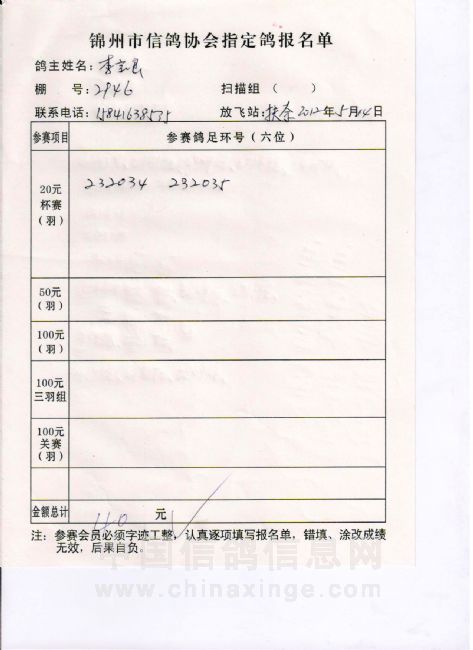 锦州市信鸽协会指定鸽报名单
鸽主姓名:李
棚 号:2946 扫描组 ( )
联系电话: 放飞站:扶余 2012年5月14日
参赛项目 参赛鸽足环号(六位)
20元
杯赛
(羽) 232034 232035
50元
(羽)
100元
(羽)
100元
三羽组
100元
关赛
(羽)
金额总计 40 元
注: 参赛会员必须字迹工整, 认真逐项填写报名单, 错填、涂改成绩
无效, 后果自负。
中国信鸽信息网
www.chinaxinge.com